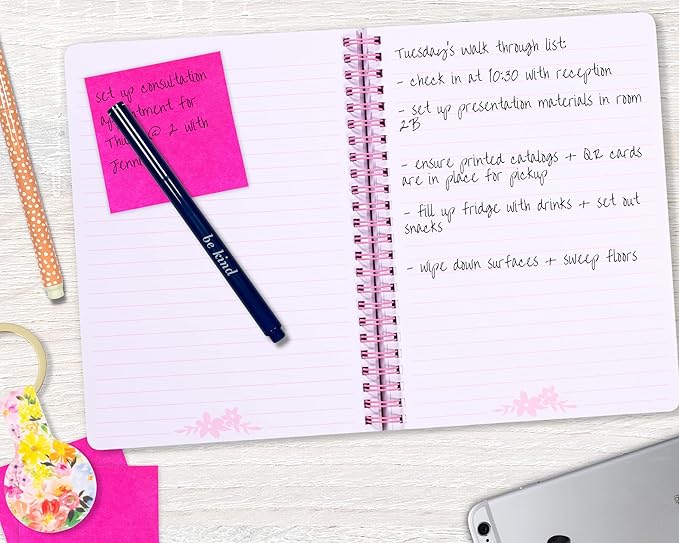 set up consultation
for
@ 2 with
Tuesday's walk through list
- check in at 10:30 with reception
- set up presentation materials in room
2B
- ensure printed catalogs + QR cards
are in place for pickup
- fill up fridge with drinks + set out
snacks
- wipe down surfaces + sweep floors
be kind